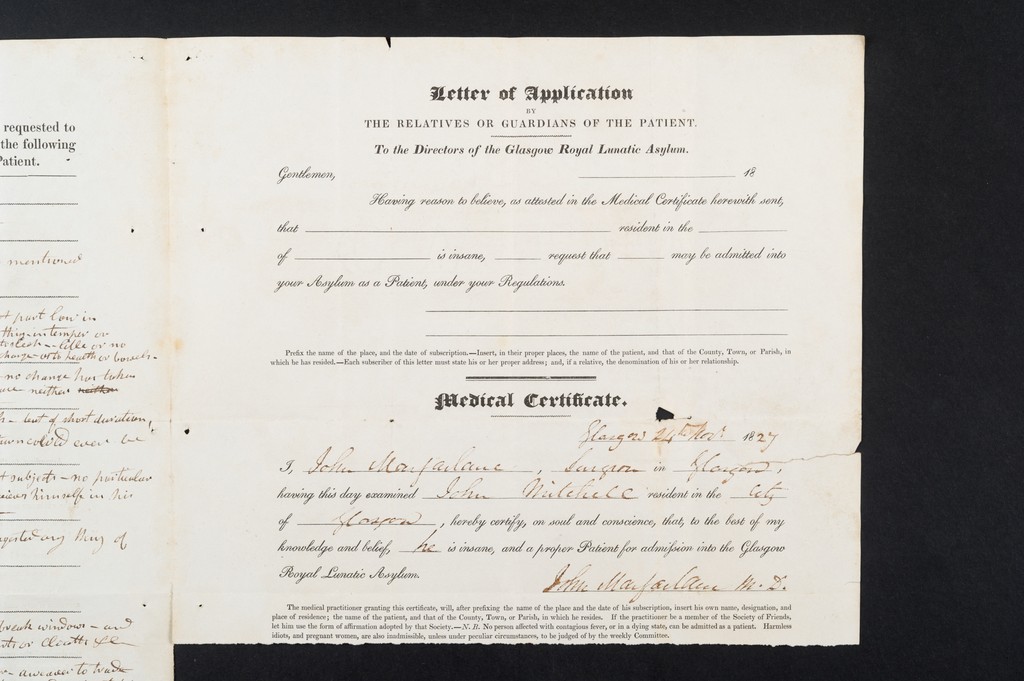 requested to
the following
Patient.
mentioned
part low in
temper or
little or no
health or bowels -
no change has taken
neither neither
of short duration,
could ever be
subjects - no particular
himself in his
of
break windows - and
or cloaths &c
a weaver to trade
Letter of Application
BY
THE RELATIVES OR GUARDIANS OF THE PATIENT.
To the Directors of the Glasgow Royal Lunatic Asylum.
Gentlemen, 18
Having reason to believe, as attested in the Medical Certificate herewith sent,
that resident in the
of is insane, request that may be admitted into
your Asylum as a Patient, under your Regulations.
Prefix the name of the place, and the date of subscription.—Insert, in their proper places, the name of the patient, and that of the County, Town, or Parish, in
which he has resided.—Each subscriber of this letter must state his or her proper address; and, if a relative, the denomination of his or her relationship.
Medical Certificate.
Glasgow 24th Novr 1827
I, John Macfarlane, Surgeon in Glasgow,
having this day examined John Mitchell resident in the City
of Glasgow, hereby certify, on soul and conscience, that, to the best of my
knowledge and belief, he is insane, and a proper Patient for admission into the Glasgow
Royal Lunatic Asylum. John Macfarlane M.D.
The medical practitioner granting this certificate, will, after prefixing the name of the place and the date of his subscription, insert his own name, designation, and
place of residence; the name of the patient, and that of the County, Town, or Parish, in which he resides. If the practitioner be a member of the Society of Friends,
let him use the form of affirmation adopted by that Society.—N. B. No person affected with contagious fever, or in a dying state, can be admitted as a patient. Harmless
idiots, and pregnant women, are also inadmissible, unless under peculiar circumstances, to be judged of by the weekly Committee.